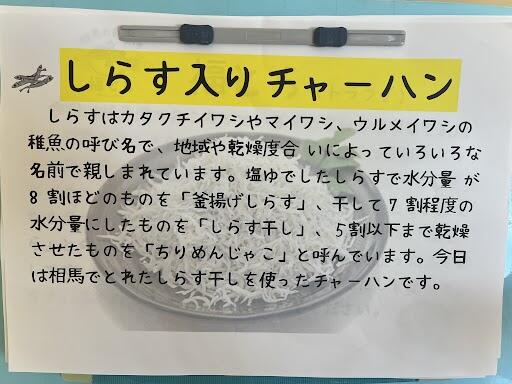 しらす入りチャーハン
しらすはカタクチイワシやマイワシ、ウルメイワシの
稚魚の呼び名で、地域や乾燥度合 いによっていろいろな
名前で親しまれています。塩ゆでしたしらすで水分量 が
8 割ほどのものを「釜揚げしらす」、干して7 割程度の
水分量にしたものを「しらす干し」、5割以下まで乾燥
させたものを「ちりめんじゃこ」と呼んでいます。今日
は相馬でとれたしらす干しを使ったチャーハンです。